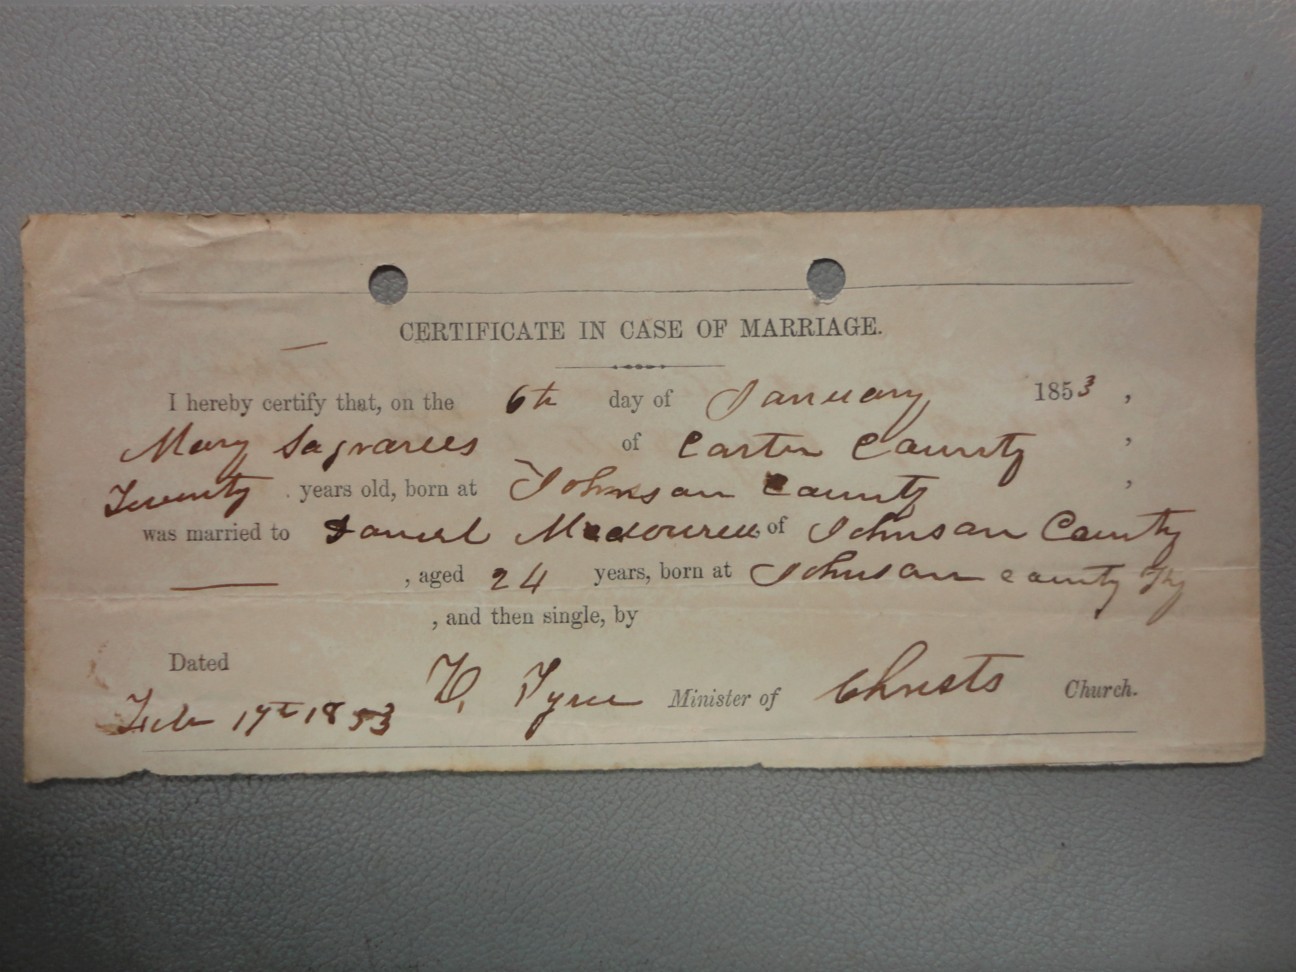 CERTIFICATE IN CASE OF MARRIAGE.
I hereby certify that, on the 6th day of January 1853,
Mary of Carter County,
Twenty years old, born at Johnson County,
was married to Daniel of Johnson County
, aged 24 years, born at Johnson County Ky
, and then single, by
Dated
Minister of Christs Church.
Feb 17th 1853